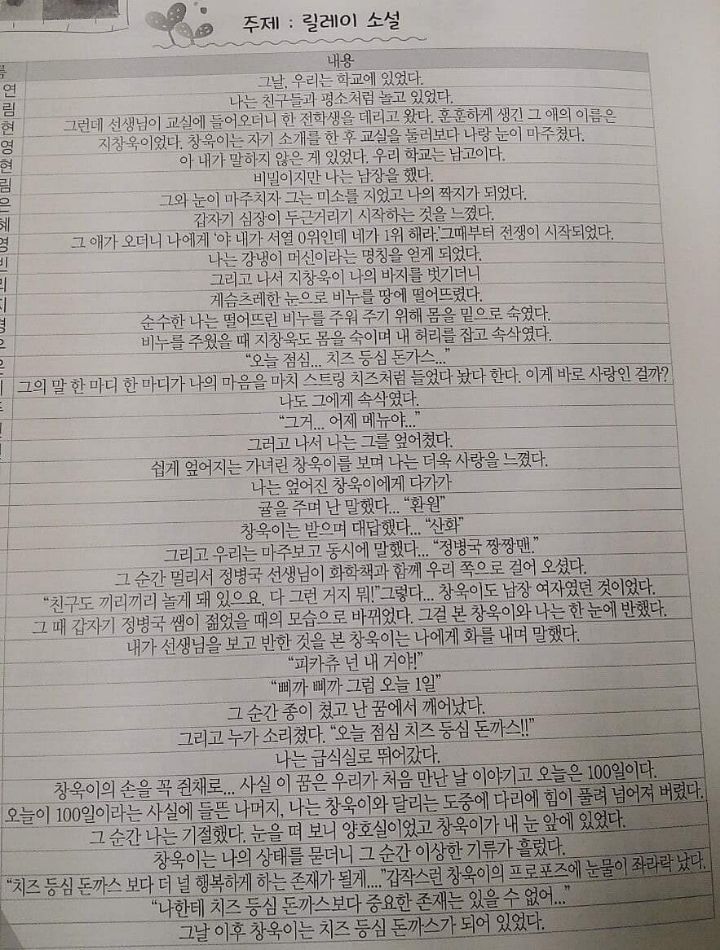 주제 : 릴레이 소설
내용
연 그날, 우리는 학교에 있었다.
림 나는 친구들과 평소처럼 놀고 있었다.
현 그런데 선생님이 교실에 들어오더니 한 전학생을 데리고 왔다. 훈훈하게 생긴 그 애의 이름은
영 지창욱이었다. 창욱이는 자기 소개를 한 후 교실을 둘러보다 나랑 눈이 마주쳤다.
현 아 내가 말하지 않은 게 있었다. 우리 학교는 남고이다.
림 비밀이지만 나는 남장을 했다.
은 그와 눈이 마주치자 그는 미소를 지었고 나의 짝지가 되었다.
혜 갑자기 심장이 두근거리기 시작하는 것을 느꼈다.
영 그 애가 오더니 나에게 ‘야 내가 서열 0위인데 네가 1위 해라.’그때부터 전쟁이 시작되었다.
빈 나는 강냉이 머신이라는 명칭을 얻게 되었다.
리 그리고 나서 지창욱이 나의 바지를 벗기더니
지 게슴츠레한 눈으로 비누를 땅에 떨어뜨렸다.
순수한 나는 떨어뜨린 비누를 주워 주기 위해 몸을 밑으로 숙였다.
비누를 주웠을 때 지창욱도 몸을 숙이며 내 허리를 잡고 속삭였다.
“오늘 점심... 치즈 등심 돈가스...”
그의 말 한 마디 한 마디가 나의 마음을 마치 스트링 치즈처럼 들었다 놨다 한다. 이게 바로 사랑인 걸까?
나도 그에게 속삭였다.
“그거... 어제 메뉴야...”
그러고 나서 나는 그를 엎어쳤다.
쉽게 엎어지는 가녀린 창욱이를 보며 나는 더욱 사랑을 느꼈다.
나는 엎어진 창욱이에게 다가가
귤을 주며 난 말했다... “환원”
창욱이는 받으며 대답했다... “산화”
그리고 우리는 마주보고 동시에 말했다... “정병국 짱짱맨.”
그 순간 멀리서 정병국 선생님이 화학책과 함께 우리 쪽으로 걸어 오셨다.
“친구도 끼리끼리 놀게 돼 있으요. 다 그런 거지 뭐!”그렇다... 창욱이도 남장 여자였던 것이었다.
그 때 갑자기 정병국 쌤이 젊었을 때의 모습으로 바뀌었다. 그걸 본 창욱이와 나는 한 눈에 반했다.
내가 선생님을 보고 반한 것을 본 창욱이는 나에게 화를 내며 말했다.
“피카츄 넌 내 거야!”
“삐까 삐까 그럼 오늘 1일”
그 순간 종이 쳤고 난 꿈에서 깨어났다.
그리고 누가 소리쳤다. “오늘 점심 치즈 등심 돈까스!!”
나는 급식실로 뛰어갔다.
창욱이의 손을 꼭 쥔채로... 사실 이 꿈은 우리가 처음 만난 날 이야기고 오늘은 100일이다.
오늘이 100일이라는 사실에 들뜬 나머지, 나는 창욱이와 달리는 도중에 다리에 힘이 풀려 넘어져 버렸다.
그 순간 나는 기절했다. 눈을 떠 보니 양호실이었고 창욱이가 내 눈 앞에 있었다.
창욱이는 나의 상태를 묻더니 그 순간 이상한 기류가 흘렀다.
“치즈 등심 돈까스 보다 더 널 행복하게 하는 존재가 될게....”갑작스런 창욱이의 프로포즈에 눈물이 좌라락 났다.
“나한테 치즈 등심 돈까스보다 중요한 존재는 있을 수 없어...”
그날 이후 창욱이는 치즈 등심 돈까스가 되어 있었다.